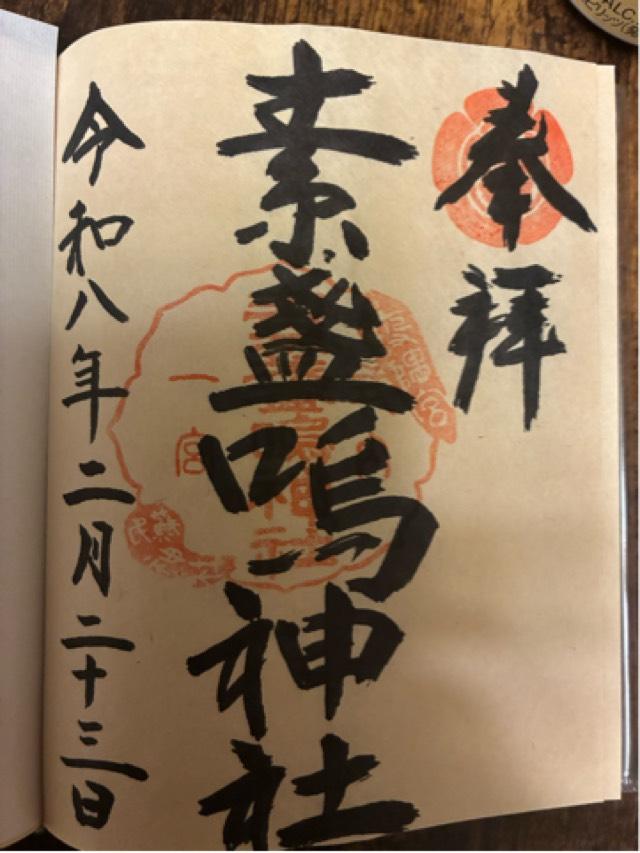 奉拝
素盞嗚神社
令和八年二月二十三日
一宮